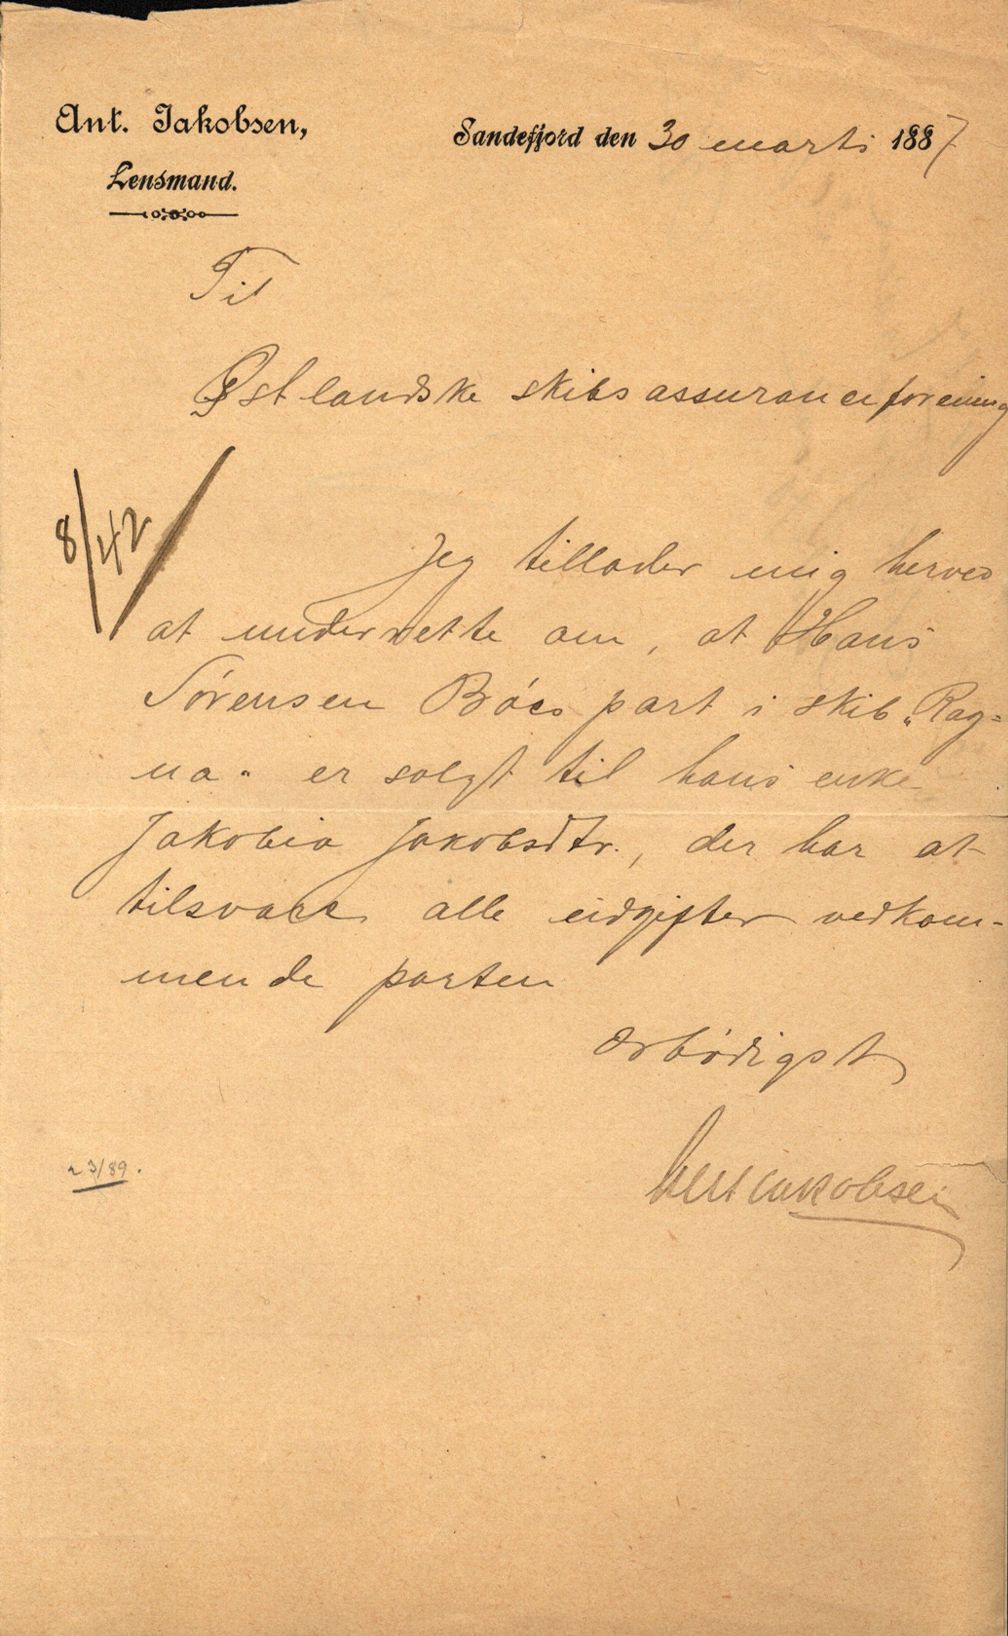 Ant. Jakobsen,
Lensmand.
Sandefjord den 30 marts 1887
Til
Østlandske skibsassuranceforening
8/42
Jeg tillader mig herved
at underrette om, at Hans
Sørensen Bøes part i skib „Rag=
na" er solgt til hans enke
Jakobia Jakobsdtr., der har at
tilsvare alle udgifter vedkom-
mende parten
Ærbødigst
Ant Jakobsen
3/89.